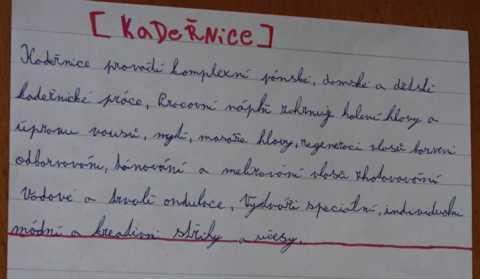 [KaDeŘNice]
Kadeřnice provádí komplexní pánské, damské a dětské
kadeřnické práce, Pracovní náplň zahrnuje holení hlavy a
úpravu vousů, mytí, masáže hlavy, regeneraci vlasů barvení
odbarvování, tónování a melírování vlasů zhotovování
Vodové a trvalé ondulace, Vytváří speciální, individuální
módní a kreativní střihy a účesy.